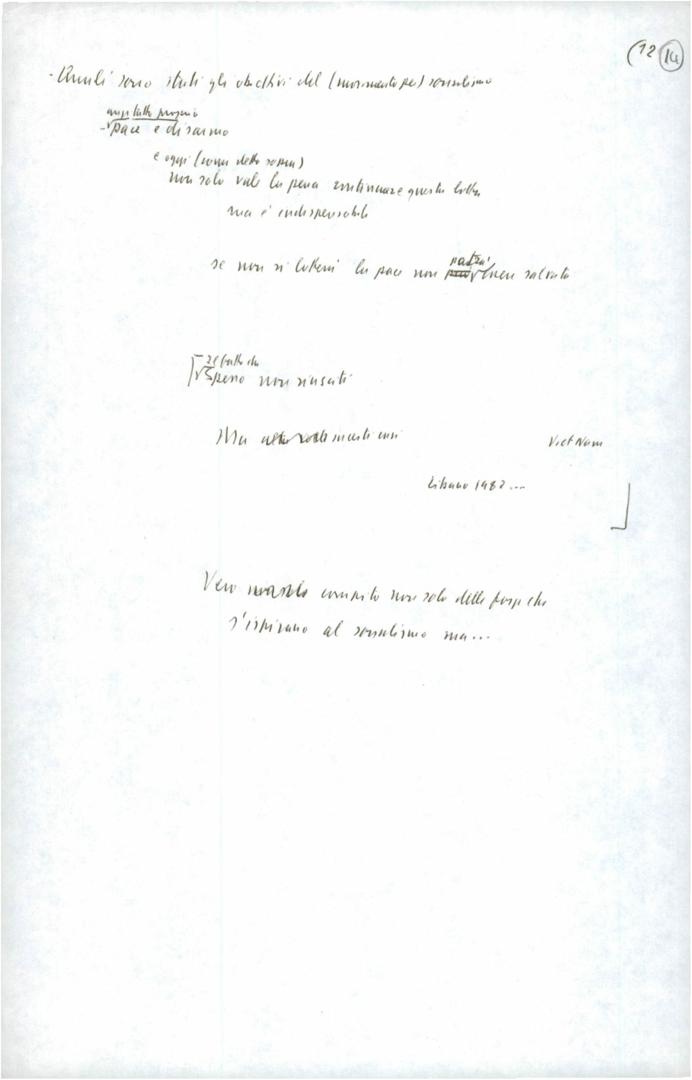 (12 14
- Quali sono stati gli obiettivi del (movimento per) socialismo
anzitutto proprio
- pace e disarmo
e oggi (corsa della
non solo vale la pena continuare questa lotta
ma è indispensabile
se non si lotterà la pace non potrà essere salvata
Si tratta di
Spesso non riusciti
Ma in questi anni Viet Nam
Libano 1982...
Vero compito non solo delle forze che
s'ispirano al socialismo ma...